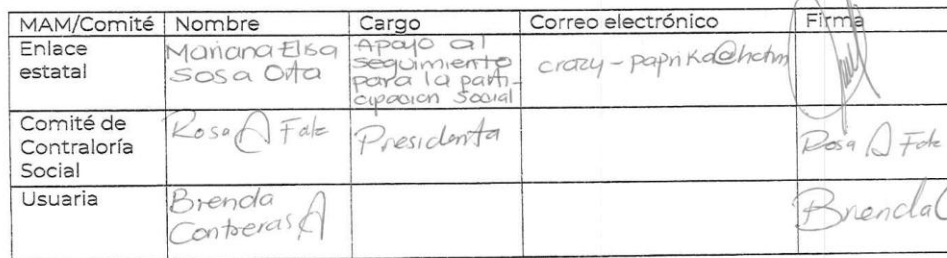 MAM/Comité Nombre Cargo Correo electrónico Firma
Enlace estatal
Mariana Elisa
Sosa Orta
Apoyo al
seguimiento
para la parti-
cipación Social
crazy-paprika@hotm
Comité de
Contraloría
Social
Rosa A Falz
Presidenta
Rosa A Falz
Usuaria
Brenda
Contreras A
Brenda C